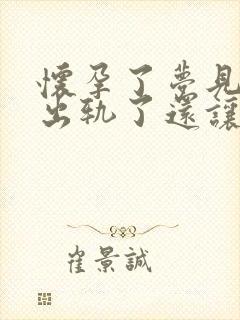 懷孕了夢見
出轨了還讓
崔景誠